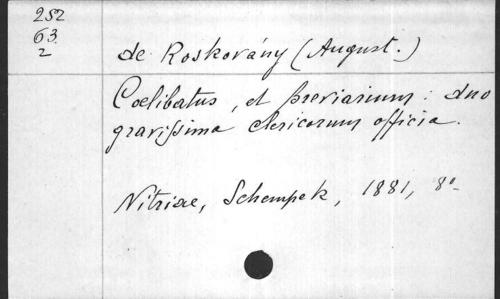 252
63
2
de Roskovány (August.)
Coelibatus, et breviarium: duo
gravissima clericorum officia.
Nitriae, Schempek, 1881, 8º